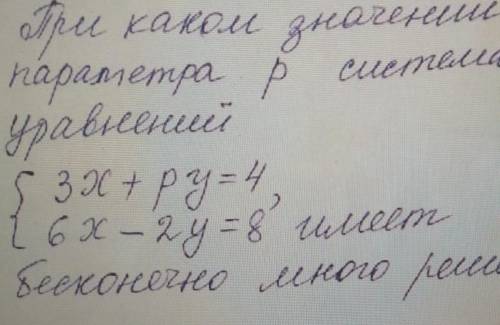 При каком значении
параметра р система
уравнений
{ 3х + ру = 4,
6х − 2у = 8, имеет
бесконечно много